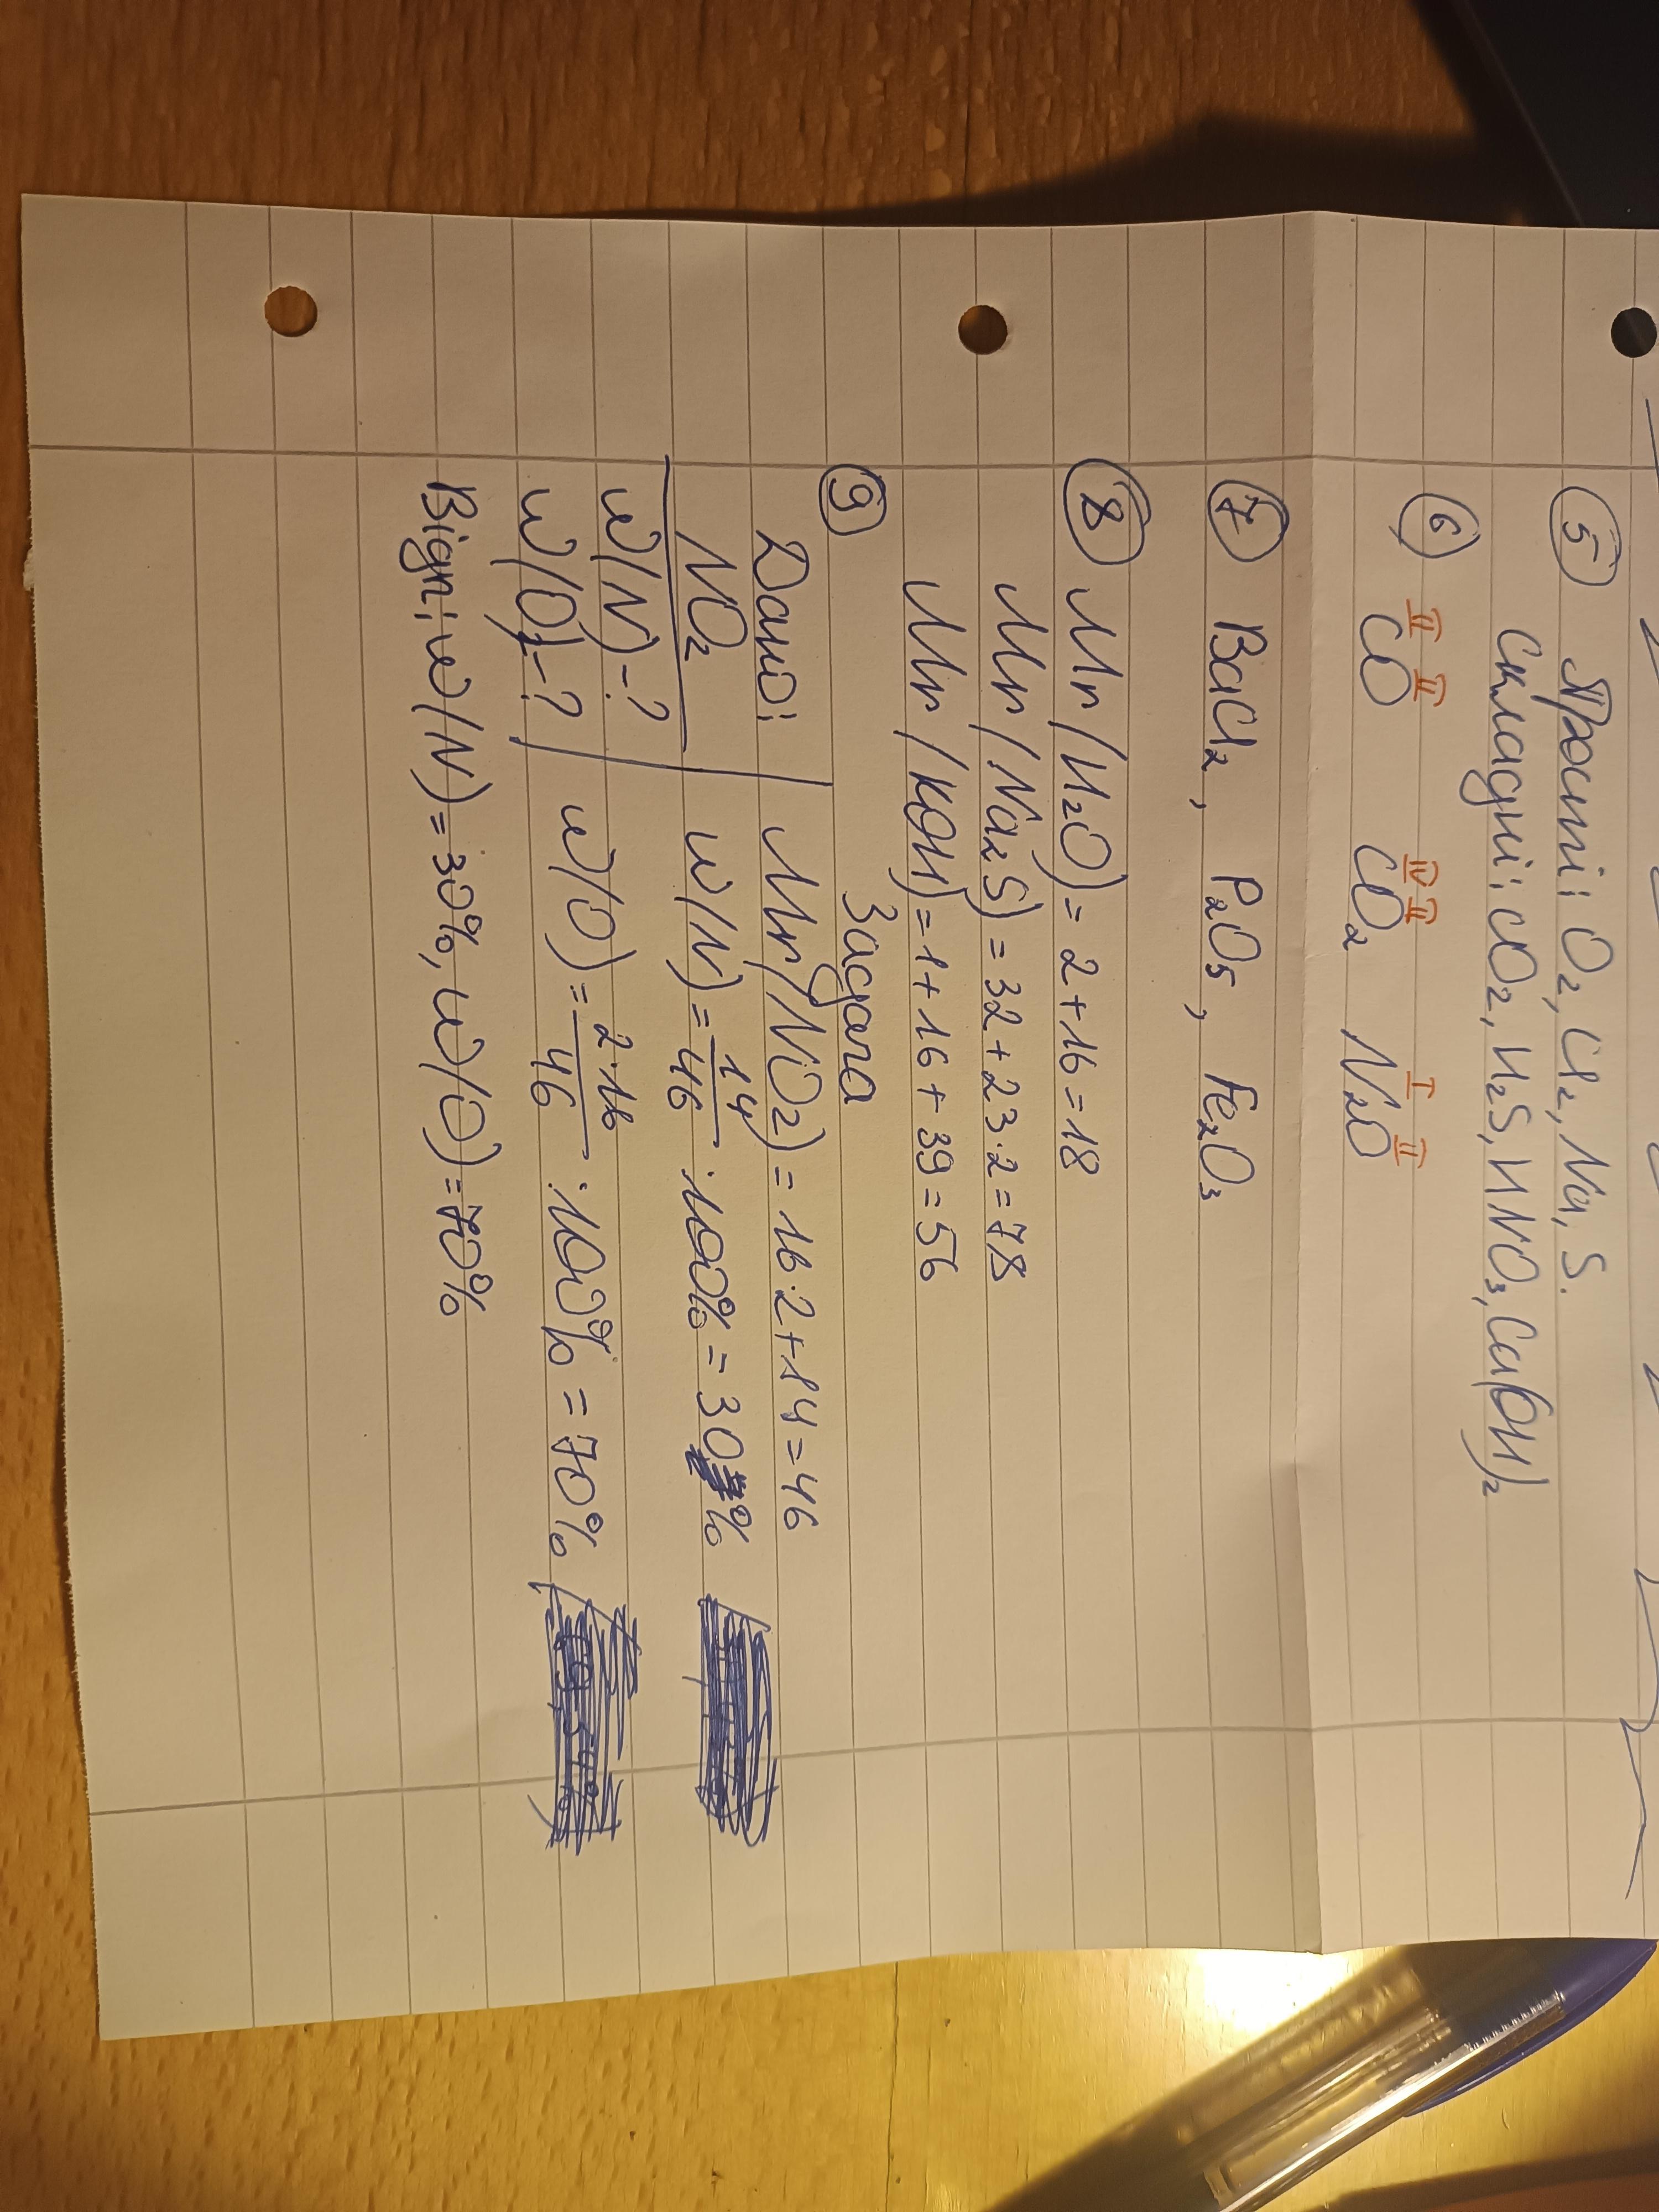 ⑤ Прості: O₂, Cl₂, Na, S.
Складні: CO₂, H₂S, HNO₃, Ca(OH)₂
II II IV II I II
⑥ CO CO₂ N₂O
⑦ BaCl₂, P₂O₅, Fe₂O₃
⑧ Mr(H₂O) = 2+16 = 18
Mr(Na₂S) = 32+23·2 = 78
Mr(KOH) = 1+16+39 = 56
⑨ Задача
Дано: Mr(NO₂) = 16·2+14 = 46
NO₂ w(N) = 14/46 · 100% = 30%
w(N)-?
w(O)-? w(O) = 2·16/46 · 100% = 70%
Відпі: w(N) = 30%, w(O) = 70%